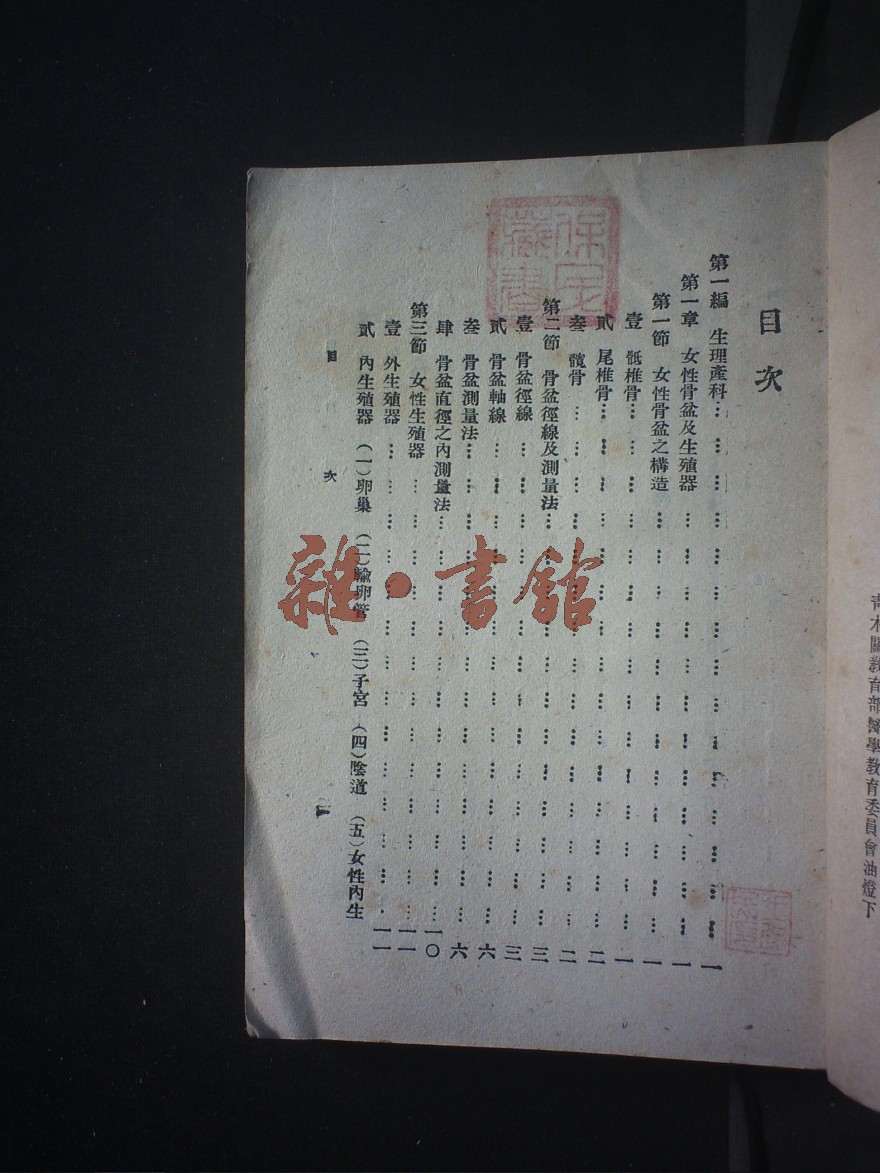 青木關教育部醫學教育委員會油燈下
目次
第一編 生理產科……一
第一章 女性骨盆及生殖器……一
第一節 女性骨盆之構造……一
壹 骶椎骨……一
貳 尾椎骨……二
叁 髖骨……二
第二節 骨盆徑線及測量法……三
壹 骨盆徑線……三
貳 骨盆軸線……六
叁 骨盆測量法……六
肆 骨盆直徑之內測量法……一〇
第三節 女性生殖器……一一
壹 外生殖器……一一
貳 內生殖器 (一)卵巢 (二)輸卵管 (三)子宮 (四)陰道 (五)女性內生
目次 一
保民藏書
雜·書館